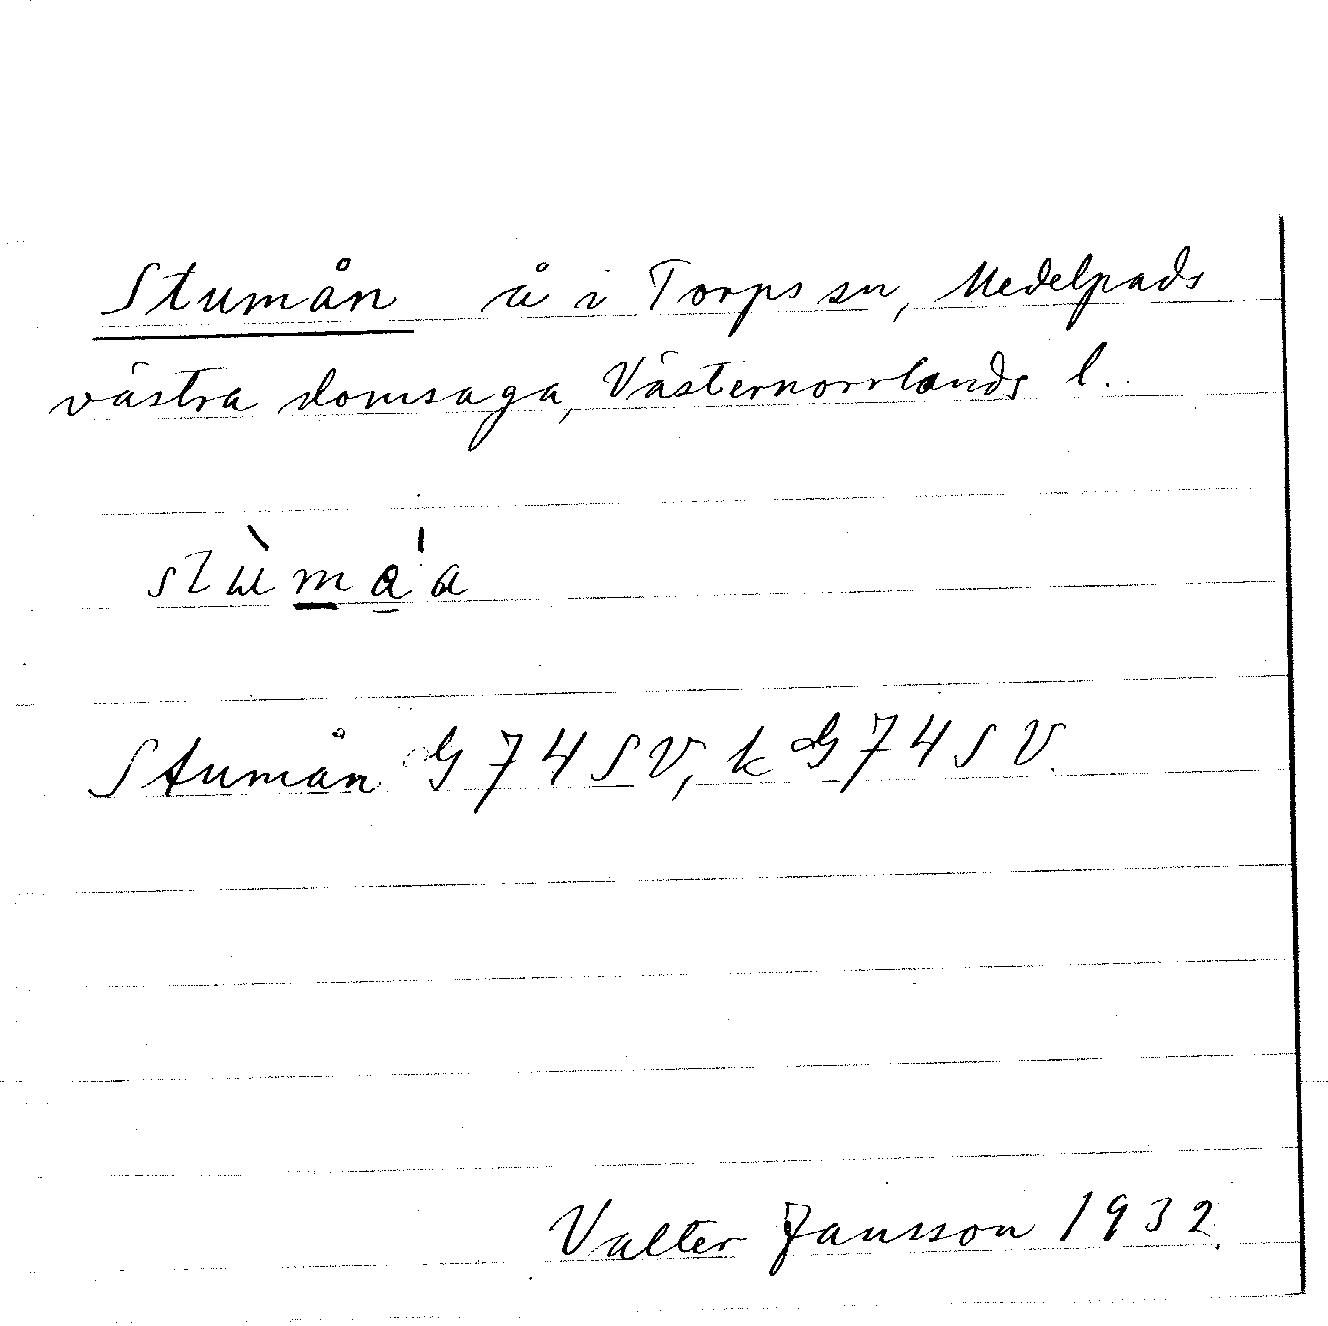 Stumån å i Torps sn, Medelpads
västra domsaga, Västernorrlands l.
Stumån G 74 SV, k G 74 SV.
Valter Jansson 1932.